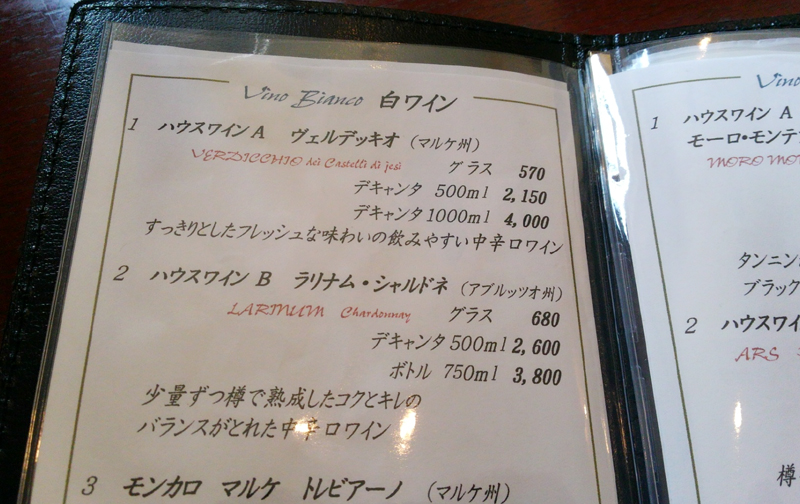 Vino Bianco 白ワイン
1 ハウスワインA ヴェルデッキオ (マルケ州)
VERDICCHIO dei Castelli di jesi グラス 570
デキャンタ 500ml 2,150
デキャンタ1000ml 4,000
すっきりとしたフレッシュな味わいの飲みやすい中辛口ワイン
2 ハウスワイン B ラリナム・シャルドネ (アブルッツオ州)
LARINUM Chardonnay グラス 680
デキャンタ 500ml 2,600
ボトル 750ml 3,800
少量ずつ樽で熟成したコクとキレの
バランスがとれた中辛口ワイン
3 モンカロ マルケ トレビアーノ (マルケ州)
Vino
1 ハウスワイン A
モーロ・モンテ
MORO
タンニン
ブラック
2 ハウスワイ
ARS
樽